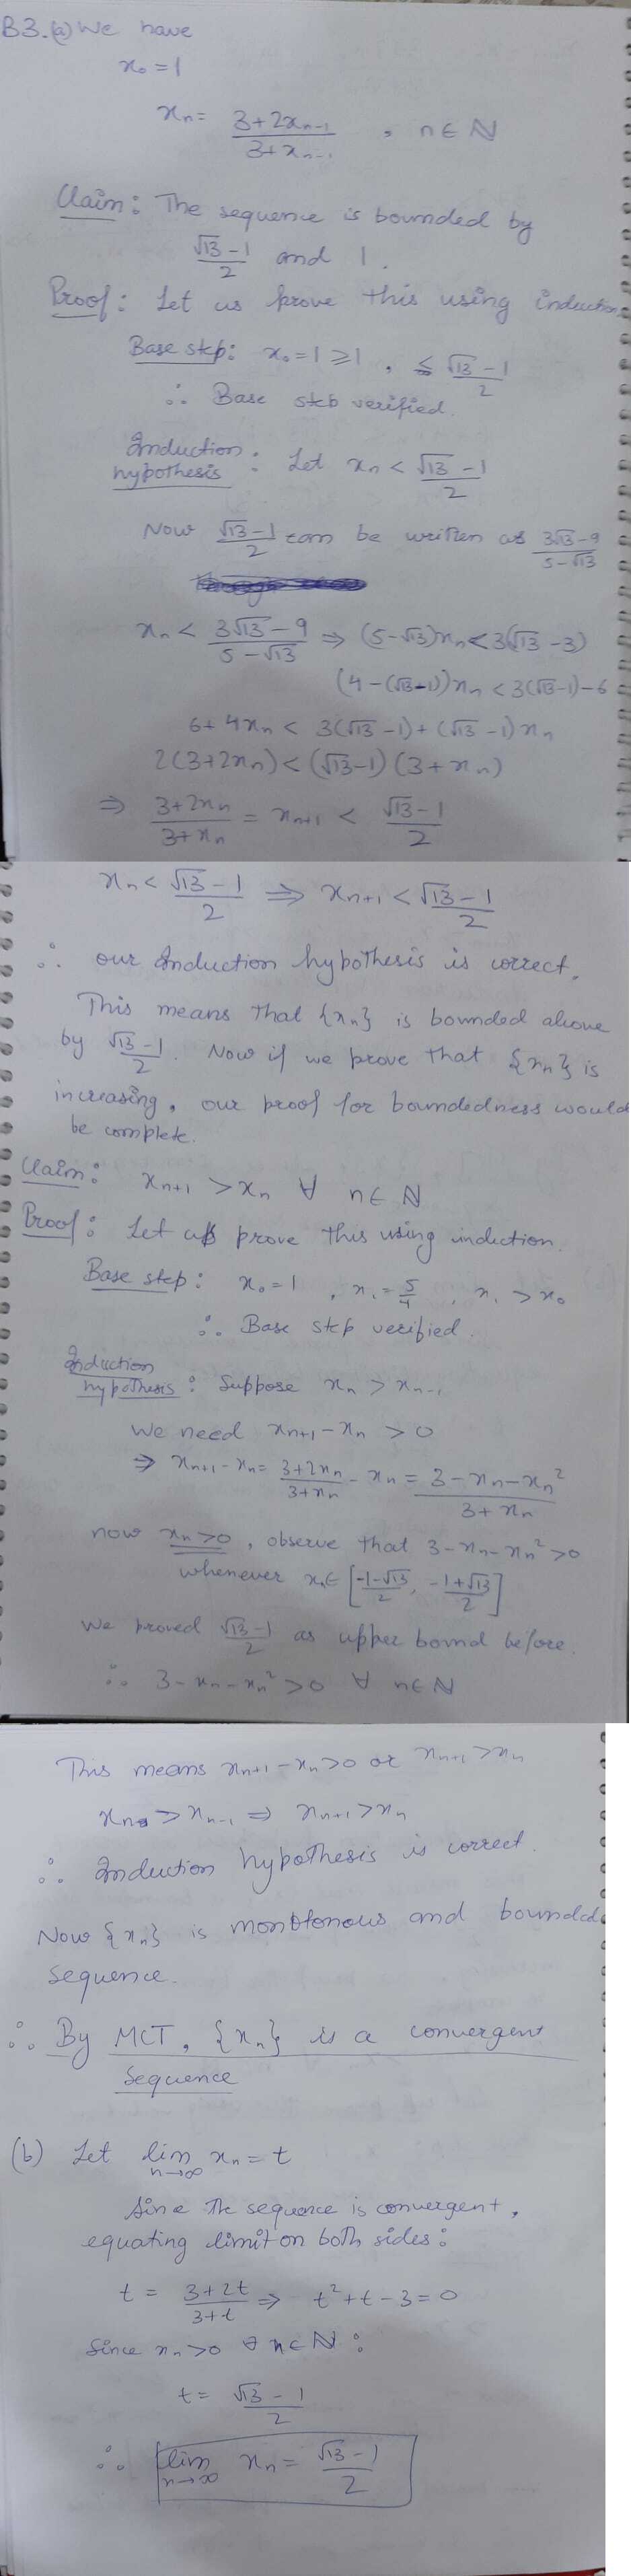 B3. (a) We have
x₀ = 1
xₙ = (3+2xₙ₋₁)/(3+xₙ₋₁) , n ∈ ℕ
Claim: The sequence is bounded by
(√13 - 1)/2 and 1.
Proof: Let us prove this using induction
Base step: x₀ = 1 ≥ 1 , ≤ (√13 - 1)/2
∴ Base step verified.
Induction hypothesis : Let xₙ < (√13 - 1)/2
Now (√13-1)/2 can be written as (3√13-9)/(5-√13)
xₙ < (3√13-9)/(5-√13) ⇒ (5-√13)xₙ < 3(√13-3)
(4-(√13-1))xₙ < 3(√13-1)-6
6+4xₙ < 3(√13-1)+(√13-1)xₙ
2(3+2xₙ) < (√13-1)(3+xₙ)
⇒ (3+2xₙ)/(3+xₙ) = xₙ₊₁ < (√13-1)/2
xₙ < (√13-1)/2 ⇒ xₙ₊₁ < (√13-1)/2
∴ our Induction hypothesis is correct.
This means that {xₙ} is bounded above
by (√13-1)/2. Now if we prove that {xₙ} is
increasing, our proof for boundedness would
be complete.
Claim: xₙ₊₁ > xₙ ∀ n ∈ ℕ
Proof: Let us prove this using induction.
Base step: x₀ = 1 , x₁ = 5/4 , x₁ > x₀
∴ Base step verified.
Induction hypothesis : Suppose xₙ > xₙ₋₁
We need xₙ₊₁ - xₙ > 0
⇒ xₙ₊₁ - xₙ = (3+2xₙ)/(3+xₙ) - xₙ = (3-xₙ-xₙ²)/(3+xₙ)
now xₙ > 0 , observe that 3-xₙ-xₙ² > 0
whenever xₙ ∈ [(-1-√13)/2, (-1+√13)/2]
We proved (√13-1)/2 as upper bound before.
∴ 3-xₙ-xₙ² > 0 ∀ n ∈ ℕ
This means xₙ₊₁ - xₙ > 0 or xₙ₊₁ > xₙ
xₙ > xₙ₋₁ ⇒ xₙ₊₁ > xₙ
∴ Induction hypothesis is correct.
Now {xₙ} is monotonous and bounded
sequence.
∴ By MCT, {xₙ} is a convergent
sequence
(b) Let lim n→∞ xₙ = t
Since the sequence is convergent,
equating limit on both sides:
t = (3+2t)/(3+t) ⇒ t²+t-3 = 0
Since xₙ > 0 ∀ n ∈ ℕ :
t = (√13 - 1)/2
∴ lim n→∞ xₙ = (√13 - 1)/2